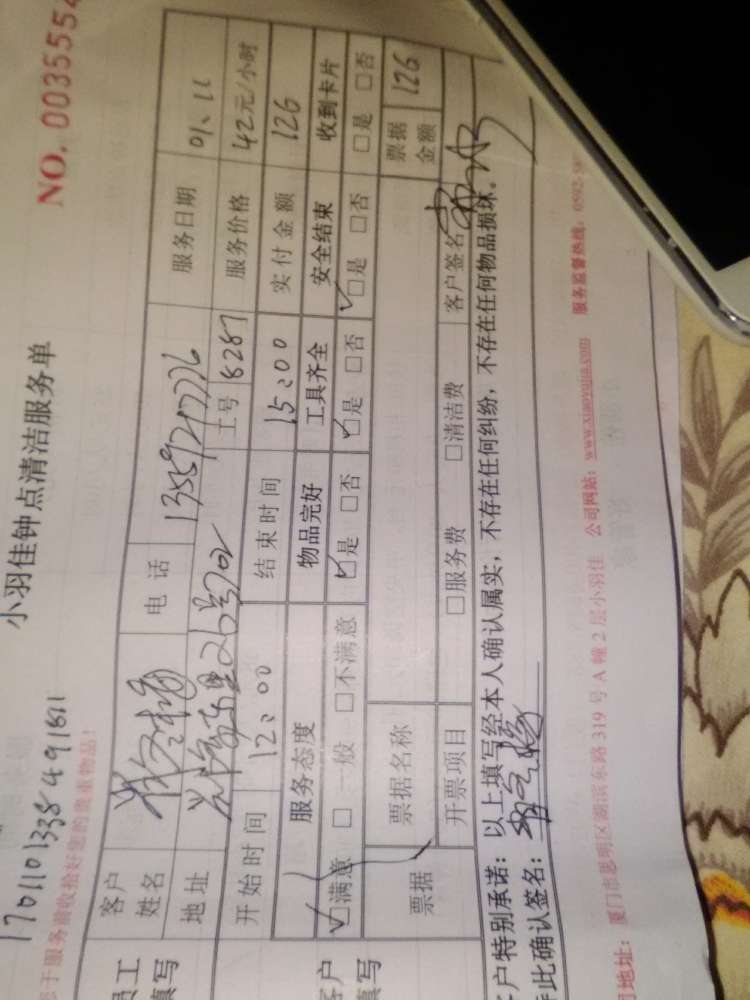 NO. 0035554
小羽佳钟点清洁服务单
170110133849181
于服务前收拾好您的贵重物品!
员工
填写
客户
姓名
电话
服务日期
01.11
地址
26号702
工号
8287
服务价格
42元/小时
开始时间
12:00
结束时间
15:00
实付金额
126
客户
填写
服务态度
物品完好
工具齐全
安全结束
收到卡片
☑满意 □一般 □不满意
☑是 □否
☑是 □否
☑是 □否
□是 □否
票据
票据名称
票据
金额
126
开票项目
□服务费 □清洁费
客户签名
户特别承诺:以上填写经本人确认属实,不存在任何纠纷,不存在任何物品损坏。
此确认签名:
地址:厦门市思明区湖滨东路319号A幢2层小羽佳 公司网站:www.xiaoyujia.com 服务监督热线:0592-